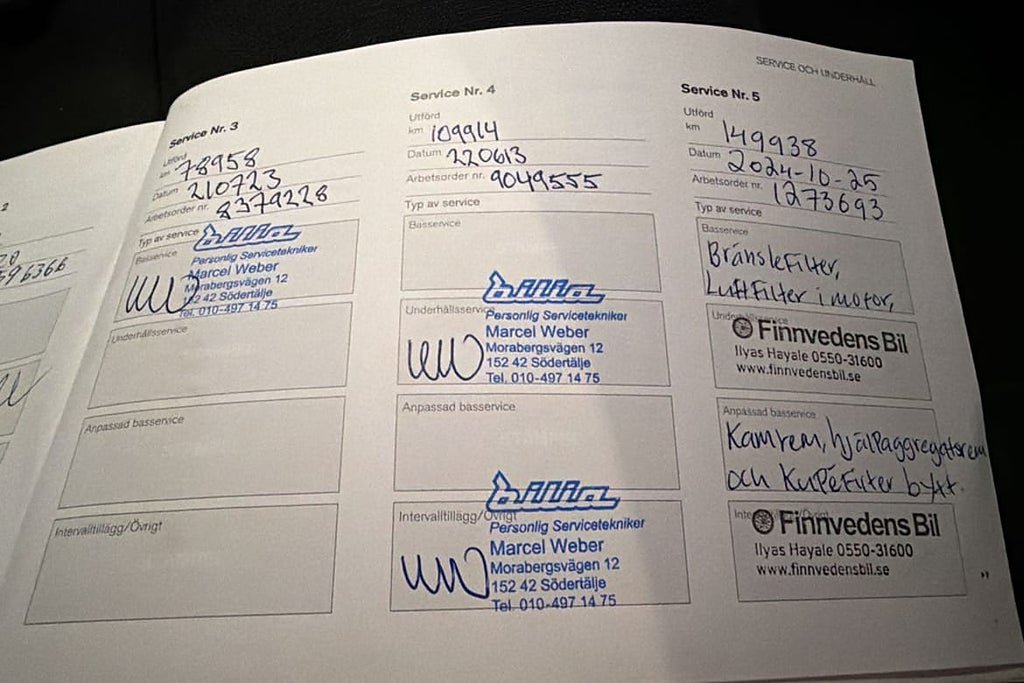 SERVICE OCH UNDERHÅLL
2
596366
Service Nr. 3
Utförd
km 78958
Datum 210723
Arbetsorder nr. 8379228
Typ av service
Basservice
bilia
Personlig Servicetekniker
Marcel Weber
Morabergsvägen 12
152 42 Södertälje
Tel. 010-497 14 75
Underhållsservice
Anpassad basservice
Intervalltillägg/Övrigt
Service Nr. 4
Utförd
km 109914
Datum 220613
Arbetsorder nr. 9049555
Typ av service
Basservice
Underhållsservice
bilia
Personlig Servicetekniker
Marcel Weber
Morabergsvägen 12
152 42 Södertälje
Tel. 010-497 14 75
Anpassad basservice
Intervalltillägg/Övrigt
bilia
Personlig Servicetekniker
Marcel Weber
Morabergsvägen 12
152 42 Södertälje
Tel. 010-497 14 75
Service Nr. 5
Utförd
km 149938
Datum 2024-10-25
Arbetsorder nr. 1273693
Typ av service
Basservice
BränsleFilter,
LuftFilter i motor,
Underhållsservice
Finnvedens Bil
Ilyas Hayale 0550-31600
www.finnvedensbil.se
Anpassad basservice
Kamrem, hjälpaggregatsrem
och KupéFilter bytt.
Intervalltillägg/Övrigt
Finnvedens Bil
Ilyas Hayale 0550-31600
www.finnvedensbil.se